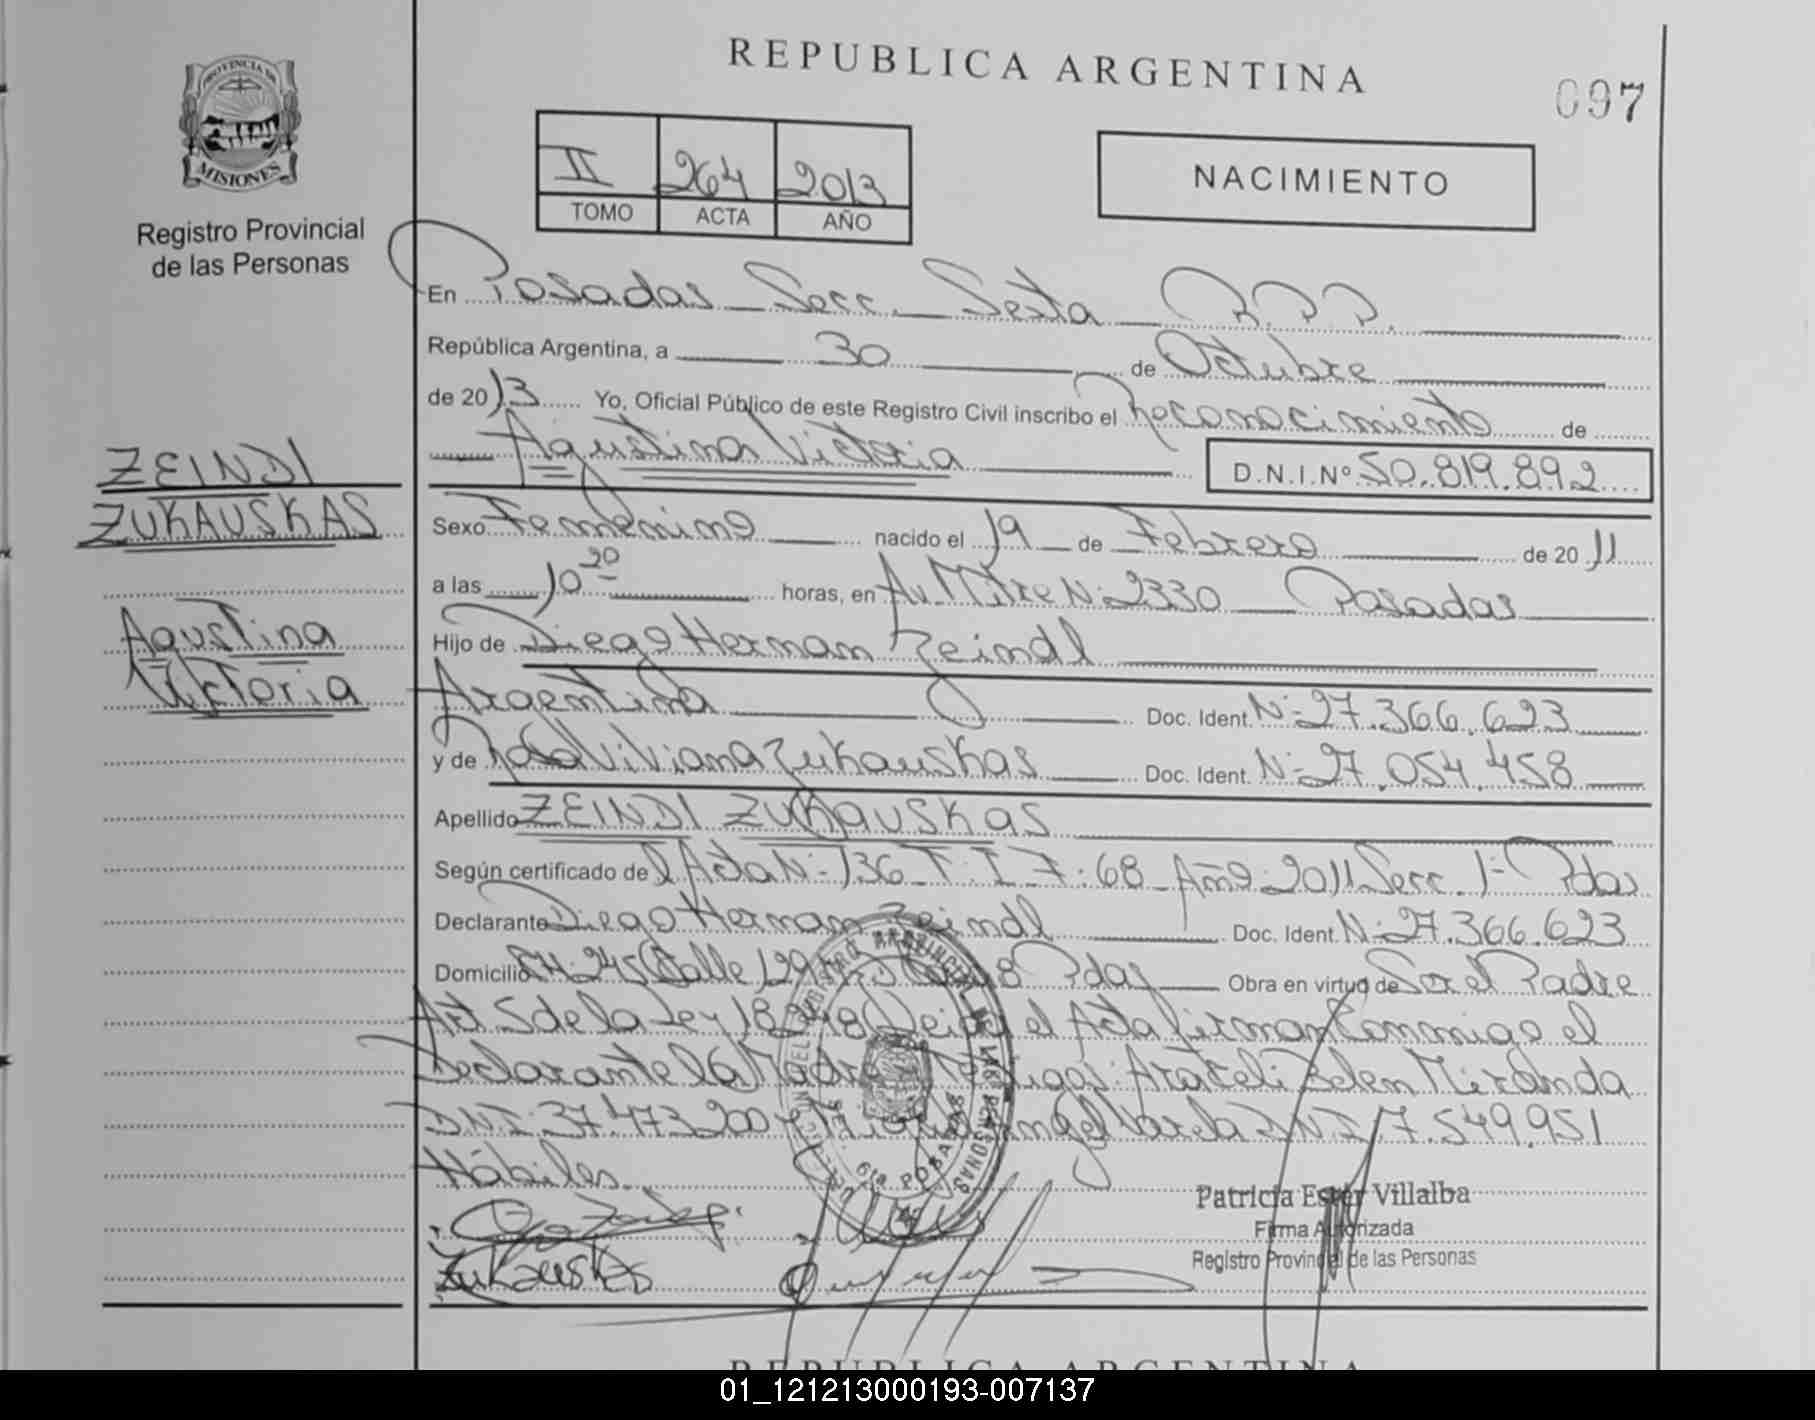 REPUBLICA ARGENTINA
097
PROVINCIA DE
MISIONES
Registro Provincial
de las Personas
II 264 2013
TOMO ACTA AÑO
NACIMIENTO
En Posadas Secc. Sexta R.P.P.
República Argentina, a 30 de Octubre
de 2013 Yo, Oficial Público de este Registro Civil inscribo el Reconocimiento de
Agustina Victoria D.N.I.Nº 50.819.892
ZEINDl
ZUKAUSKAS
Agustina
Victoria
Sexo Femenino nacido el 19 de Febrero de 2011
a las 10 20 horas, en Av. Mitre Nº 2330 Posadas
Hijo de Diego Hernan Zeindl
Argentina Doc. Ident. Nº 27.366.623
y de Rosa Viviana Zukauskas Doc. Ident. Nº 27.054.458
Apellido ZEINDl ZUKAUSKAS
Según certificado del Acta Nº 136 T. I F. 68 Año 2011 Secc. 1º Pdas
Declarante Diego Hernan Zeindl Doc. Ident. Nº 27.366.623
Domicilio CH. 245 Calle 129 Pdas Obra en virtud de Ser el Padre
Art 5 de la Ley 18248 Leida el Acta firman Conmigo el
Declarante la Madre Testigos: Araceli Belen Miranda
DNI: 37.473.200 y Angel Varela DNI 17.549.951
Hábiles
Patricia Ester Villalba
Firma Autorizada
Registro Provincial de las Personas
Zukauskas
REPUBLICA ARGENTINA
01_121213000193-007137